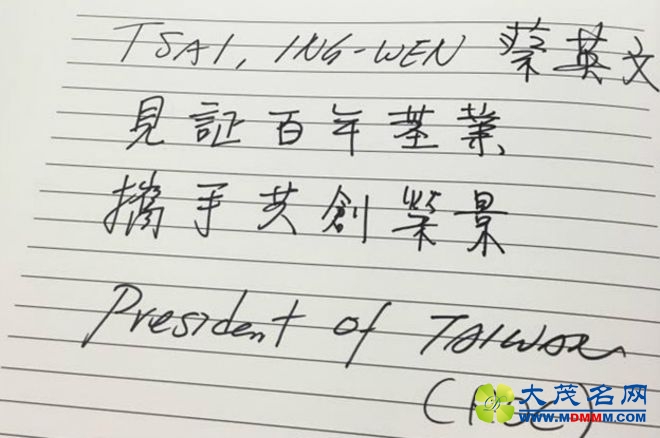 TSAI, ING-WEN 蔡英文
見証百年基業
攜手共創榮景
President of TAIWAN
大茂名网
www.MDMMM.com